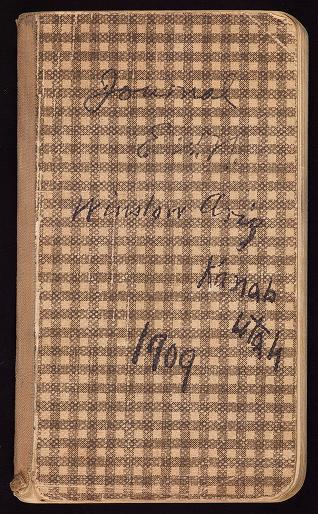 Journal
Winslow Ariz
Kanab
Utah
1909